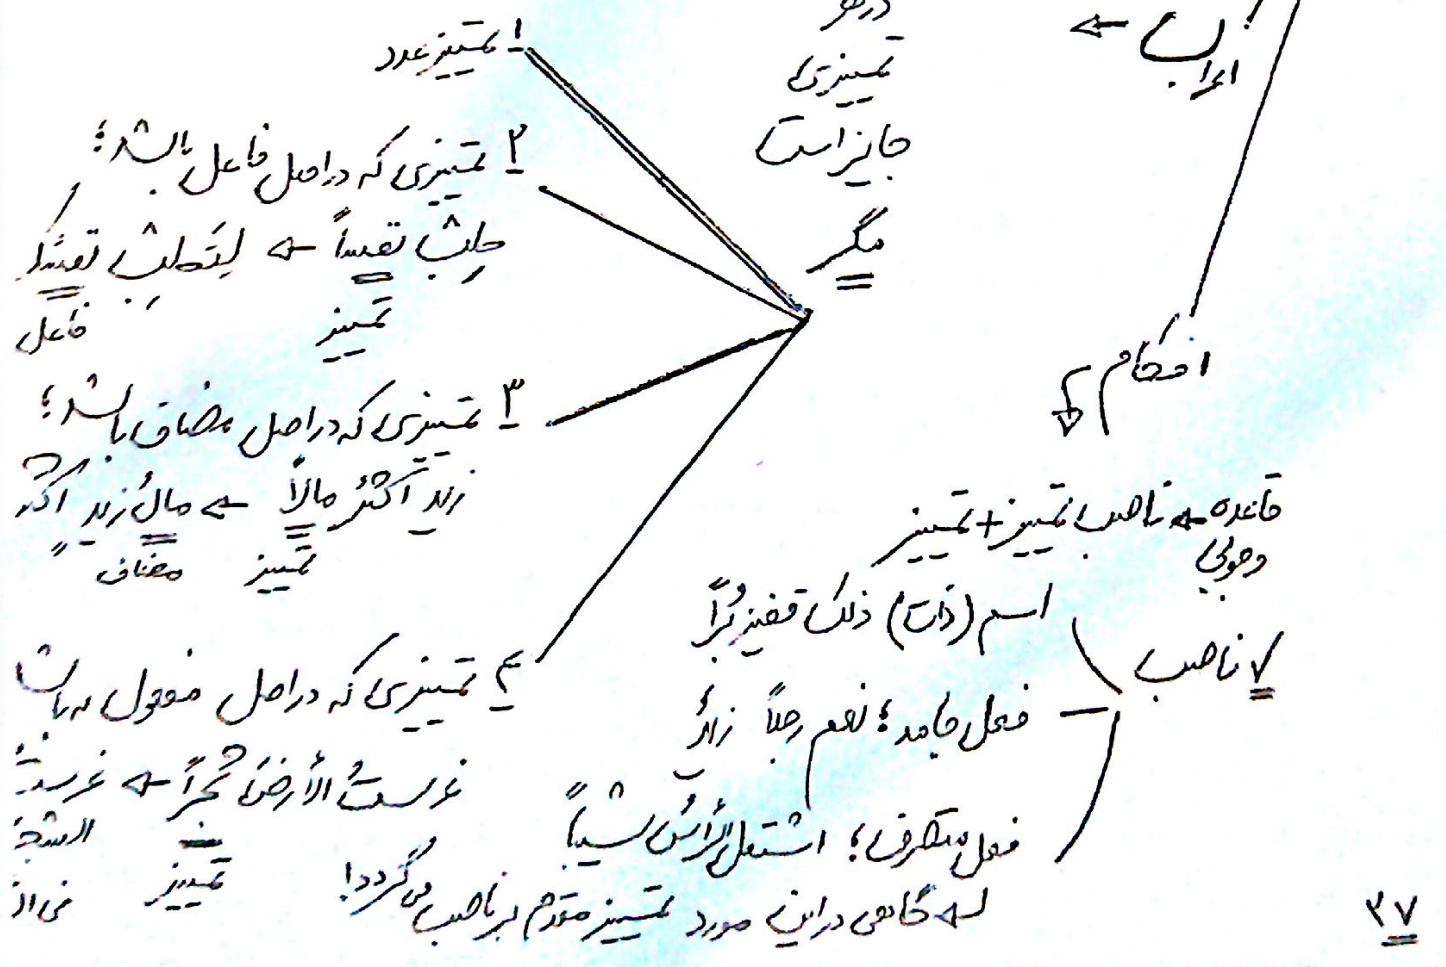 اعراب ←
در هر
تمییزی
جایز است
مگر
۱ تمییز عدد
۲ تمییزی که در اصل فاعل باشد؛
طِبْ نفساً ← لِتَطِبْ نفسُکَ
تمییز
فاعل
۳ تمییزی که در اصل مضاف باشد؛
زیدٌ اکثرُ مالاً ← مالُ زیدٍ اکثر
تمییز
مضاف
۴ تمییزی که در اصل مفعول به با
غرستُ الأرضَ شجراً ← غرستُ
تمییز
الشجر
احکام
قاعده ← ناصب تمییز + تمییز
وجوبی
۷ ناصب
اسم (ذات) ذلک قفیزٌ بُرّاً
فعل جامد؛ نعم رجلاً زیدٌ
فعل متصرف؛ اشتعل الرأسُ شیباً
گاهی در این مورد تمییز مقدم بر ناصب می‌گردد!
۳۷